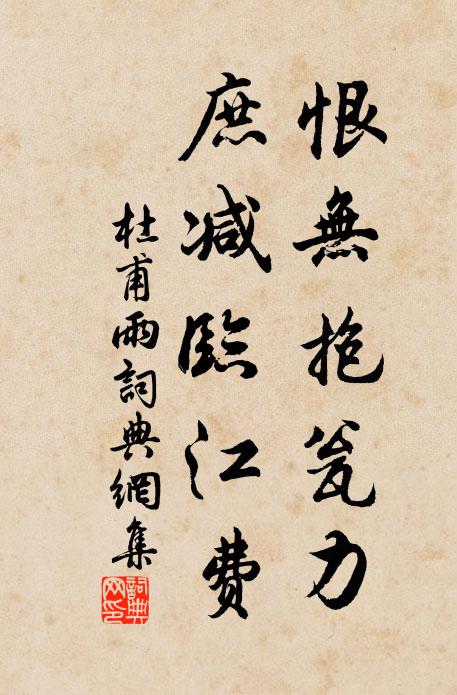 恨無抱瓮力
庶減臨江費
杜甫雨詞典網集
詞典
网印